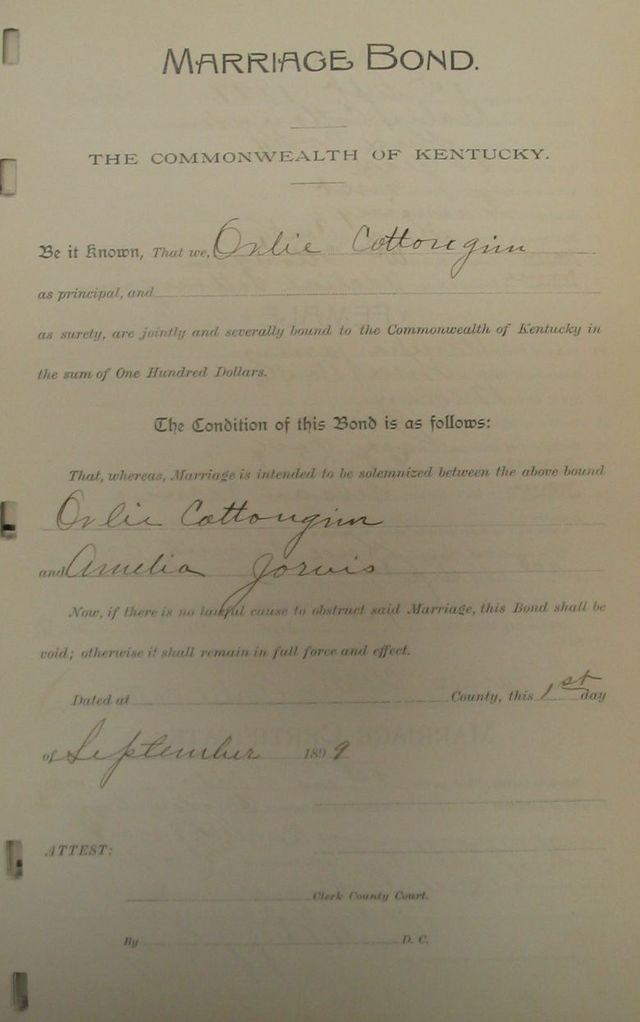 MARRIAGE BOND.
THE COMMONWEALTH OF KENTUCKY.
Be it Known, That we, Orlie Cottongim
as principal, and
as surety, are jointly and severally bound to the Commonwealth of Kentucky in
the sum of One Hundred Dollars.
The Condition of this Bond is as follows:
That, whereas, Marriage is intended to be solemnized between the above bound
Orlie Cottongim
and Amelia Jarvis
Now, if there is no lawful cause to obstruct said Marriage, this Bond shall be
void; otherwise it shall remain in full force and effect.
Dated at County, this 1st day
of September 1899
ATTEST:
Clerk County Court.
By D. C.